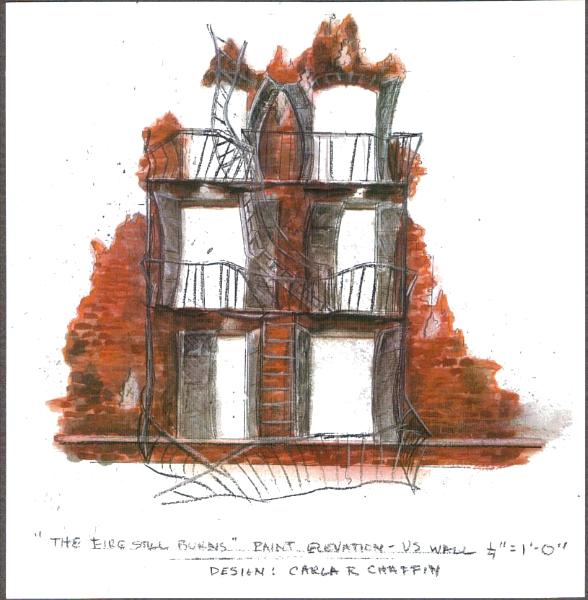 "THE FIRE STILL BURNS" PAINT ELEVATION - US WALL ¼" = 1'-0"
DESIGN: CARLA R CHAFFIN